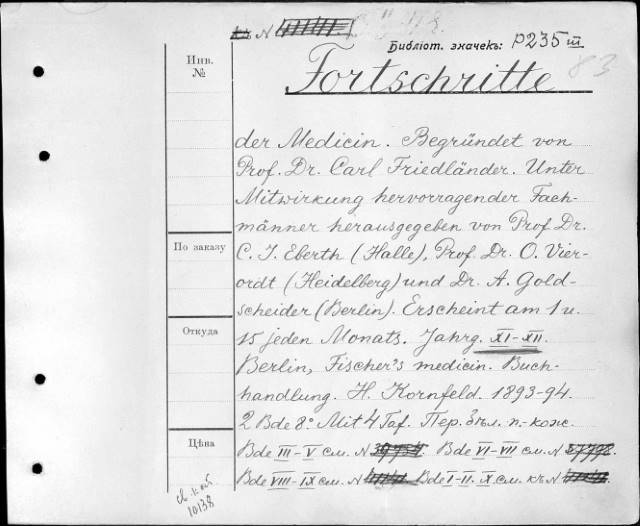 къ N
Библіот. значекъ: P235 III
83
Инв.
№
Fortschritte
der Medicin. Begründet von
Prof. Dr. Carl Friedländer. Unter
Mitwirkung hervorragender Fach-
männer herausgegeben von Prof. Dr.
По заказу
C. J. Eberth (Halle), Prof. Dr. O. Vier-
ordt (Heidelberg) und Dr. A. Gold-
scheider (Berlin). Erscheint am 1 u.
Откуда
15 jeden Monats. Jahrg. XI-XII.
Berlin, Fischer's medicin. Buch-
handlung. H. Kornfeld. 1893-94.
2 Bde 8° Mit 4 Taf. Пер. п.-кож.
Цѣна
Bde III-V см. N Bde VI-VII см. N
Bde VIII-IX см. N Bde I-II. X см. къ N
10138